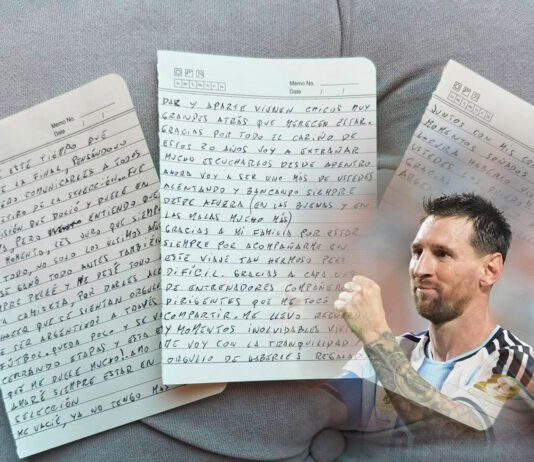 Memo No.
Date / /
ESTE TIEMPO QUE
LA FINAL, PENSANDOLO
COMUNICARLES A TODOS
DE LA SELECCION. FUE
QUE DOLIÓ Y DUELE EN
PERO ENTIENDO QUE
MOMENTO, LES JURO QUE
TODO, NO SOLO LOS ULTIMOS AÑOS
SE GANÓ TODO ANTES TAMBIEN
PELEÉ Y ME DEJÉ TODO
CAMISETA, POR DARLES
HACER QUE SE SIENTAN
SER ARGENTINOS A TRAVÉS
FÚTBOL. QUEDA POCO Y SE
CERRANDO ETAPAS Y ESTA ES
QUE ME DUELE MUCHO. AMO
AMARÉ SIEMPRE ESTAR EN
SELECCIÓN
ME VACIÉ, YA NO TENGO
Memo No.
Date / /
DAR Y APARTE VIENEN CHICOS MUY
GRANDES ATRÁS QUE MERECEN ESTAR.
GRACIAS POR TODO EL CARIÑO DE
ESTOS 20 AÑOS VOY A EXTRAÑAR
MUCHO ESCUCHARLOS DESDE ADENTRO
AHORA VOY A SER UNO MAS DE USTEDES
ALENTANDO Y BANCANDO SIEMPRE
DESDE AFUERA (EN LAS BUENAS Y EN
LAS MALAS MUCHO MÁS)
GRACIAS A MI FAMILIA POR ESTAR
SIEMPRE POR ACOMPAÑARME EN
ESTE VIAJE TAN HERMOSO PERO
DIFICIL. GRACIAS A CADA UNO
DE ENTRENADORES COMPAÑEROS
DIRIGENTES QUE ME TOCÓ
COMPARTIR. ME LLEVO
Y MOMENTOS INOLVIDABLES
ME VOY CON LA TRANQUILIDAD
ORGULLO DE HABERLES
JUNTOS CON MIS
MOMENTOS SOÑADOS
HABERME
GRACIAS